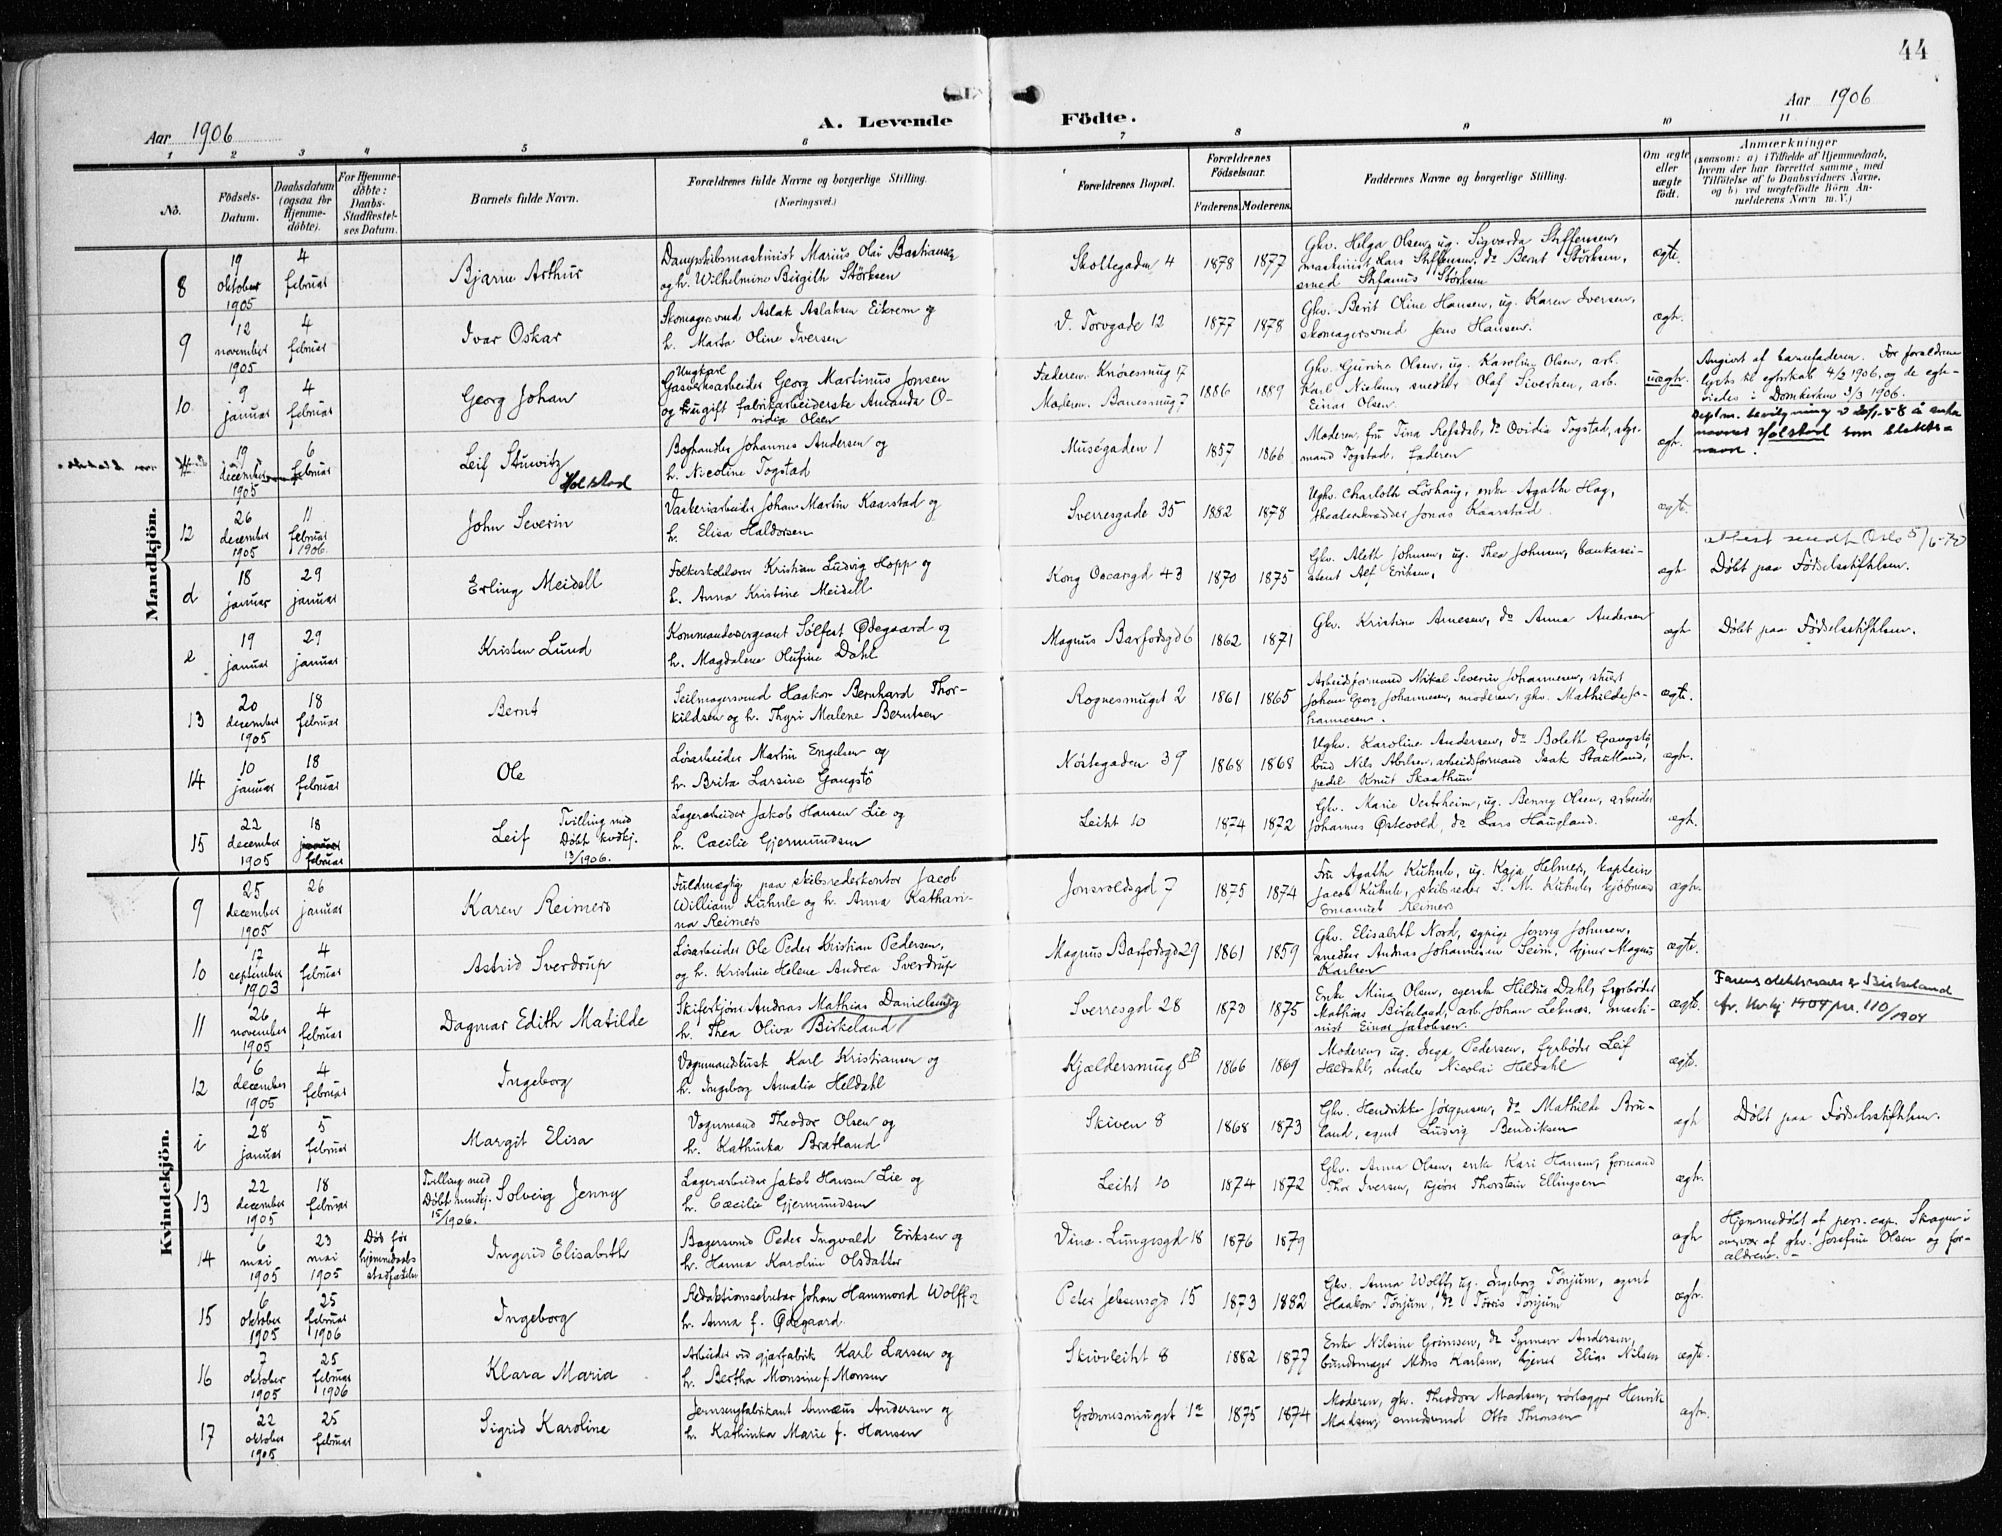 44
Aar 1906
A. Levende Födte.
Aar 1906
1 2 3 4 5 6 7 8 9 10 11
No.
Födsels-
Datum.
Daabsdatum
(ogsaa for
Hjemme-
döbte).
For Hjemme-
döbte:
Daabs-
Stadfæstel-
ses Datum.
Barnets fulde Navn.
Forældrenes fulde Navne og borgerlige Stilling.
(Næringsvei.)
Forældrenes Bopæl.
Forældrenes
Födselsaar.
Faderens. Moderens.
Faddernes Navne og borgerlige Stilling.
Om ægte
eller
uægte
født.
Anmærkninger
(saasom: a) i Tilfælde af Hjemmedaab,
hvem der har forrettet samme, med
Tilföielse af to Daabsvidners Navne,
og b) ved uægtefödte Börn An-
melderens Navn m. V.)
Mandkjön.
8
19
oktober
1905
4
februar
Bjarne Arthur
Dampskibsmaskinist Marius Olai Bastiansen
og h. Wilhelmine Birgith Störksen
Skottegaden 4
1878 1877
Gkv. Helga Olsen, ug. Sigvarda Steffensen,
maskinist Lars Steffensen, do Bernt Störksen,
smed Stefanus Störksen
ægte.
9
12
november
1905
4
februar
Ivar Oskar
Skomagersvend Aslak Aslaksen Eikrem og
h. Marta Oline Iversen
V. Torvgade 12
1877 1878
Gkv. Berit Oline Hansen, ug. Karen Iversen,
skomagersvend Jens Hansen.
ægte.
10
9
januar
4
februar
Georg Johan
Ungkarl
Gasverksarbeider Georg Martinus Jonsen
og ugift fabrikarbeiderske Amanda O-
vidia Olsen
Faderen. Knösesmug 17
Moderen. Banesmug 7
1886 1889
Gkv. Gurine Olsen, ug. Karoline Olsen, arb.
Karl Nielsen, snedker Olaf Sivertsen, arb.
Einar Olsen
uægte.
Angivet af barnefaderen. For forældrene
lyst til egteskab 4/2 1906, og de egte-
viedes i Domkirken 3/3 1906.
19
december
1905
6
februar
Leif Stuwitz
Holstad
Boghandler Johannes Andersen og
h. Nicoline Togstad
Muségaden 1
1857 1866
Moderen, fru Tina Refsdal, do Ovidia Togstad, styr-
mand Togstad, faderen
ægte.
bevilgning 20/1-58 å anta
navnet Holstad som slekts-
navn.
12
26
december
1905
11
februar
1906
John Severin
Væskeriarbeider Johan Martin Kaarstad og
h. Elisa Haldorsen
Sverresgade 35
1882 1878
Ugkv. Charloth Lövhaug, enke Agathe Hag,
theaterkræmmer Jonas Kaarstad.
ægte.
Attest sendt Oslo 5/6-70
d
18
januar
29
januar
Erling Meidell
Folkeskolelærer Kristian Ludvig Hopp og
h. Anna Kristine Meidell
Kong Oscarsgd 43
1870 1875
Gkv. Aleth Johnsen, ug. Thea Johnsen, bankassi-
stent Alf Eriksen,
ægte
Døbt paa Fødselsstiftelsen.
e
19
januar
29
januar
Kristen Lund
Kommandersergeant Sölfest Ödegaard og
h. Magdalene Olufine Dahl
Magnus Barfodsgd 6
1862 1871
Gkv. Kristine Arnesen, do Anna Andersen
ægte
Døbt paa Fødselsstiftelsen.
13
20
december
1905
18
februar
Bernt
Seilmagersvend Haakon Bernhard Thor-
kildsen og h. Thyri Malene Berntsen
Rognesmuget 2
1861 1865
Arbeidsformand Nikal Severin Johannesen, skibst
Johan Georg Johannesen, moderen, gkv. Mathilde Jo-
hannesen.
ægte.
14
10
januar
18
februar
Ole
Løsarbeider Martin Engelsen og
h. Brita Larsine Gangstö
Nöstegaden 39
1868 1868
Ugkv. Karoline Andersen, do Boleth Gangstö,
bud Nils Abelsen, arbeidsformand Isak Stautland,
pedel Knut Skaathun
ægte.
15
22
december
1905
18
januar
februar
Leif
Tvilling med
Döbt kvdkj.
13/1906.
Lagerarbeider Jakob Hansen Lie og
h. Cæcilie Gjermundsen
Leitet 10
1874 1872
Gkv. Marie Vestrheim, ug. Benny Olsen, arbeider
Johannes Østevold, do Lars Haugland.
ægte.
Kvindekjön.
9
25
december
1905
26
januar
Karen Reimers
Fuldmægtig paa skibsrederkontor Jacob
William Kuhnle og h. Anna Kathari-
na Reimers
Jonsvoldsgd 7
1875 1874
Fru Agathe Kuhnle, ug. Kaja Helmers, kaptein
Jacob Kuhnle, skibsreder S. M. Kuhnle, kjöbmand
Emanuel Reimers
ægte.
10
17
september
1903
4
februar
Astrid Sverdrup
Løsarbeider Ole Peder Kristian Pedersen,
og h. Kristine Helene Andrea Sverdrup
Magnus Barfodsgd 29
1861 1859
Gkv. Elisabeth Nord, sypige Jenny Johnsen,
snedker Andreas Johannesen Seim, tjener Magnus
Karlsen
ægte.
11
26
november
1905
4
februar
Dagmar Edith Matilde
Skiferkjører Andreas Mathias Danielsen og
h. Thea Oliva Birkeland
Sverresgd 28
1873 1875
Enke Mina Olsen, sypige Hildus Dahl, fyrböder
Mathias Birkeland, arb. Johan Leknæs, maski-
nist Einar Jakobsen.
ægte.
Farens slektsnavn er Birkeland
fr. kv kj 1904 nr. 110/1904
12
6
december
1905
4
februar
Ingeborg
Vognmandskusk Karl Kristiansen og
h. Ingeborg Amalia Heldahl
Kjeldersmug 8B
1866 1869
Moderen, ug. Inga Pedersen, fyrböder Leif
Heldahl, maler Nicolai Heldahl
ægte.
i
28
januar
5
februar
Margit Elisa
Vognmand Theodor Olsen og
h. Kathinka Bratland
Skiven 8
1868 1873
Gkv. Hendrikke Jörgensen, do Mathilde Bru-
land, agent Ludvig Bendiksen
ægte
Döbt paa Fødselsstiftelsen.
13
22
december
1905
18
februar
Tvilling med
Döbt mandkj.
15/1906.
Solveig Jenny
Lagerarbeider Jakob Hansen Lie og
h. Cæcilie Gjermundsen
Leitet 10
1874 1872
Gkv. Anna Olsen, enke Kari Hansen, formand
Thor Iversen, kjörer Thorstein Ellingsen
ægte.
14
6
mai
1905
23
mai
1905
Död før
hjemmedaabs
stadfæstelse
Ingerid Elisabeth
Bagersvend Peder Ingvald Eriksen og
h. Hanna Karoline Olsdatter
Vinc. Lungesgd 18
1876 1879
ægte
Hjemmedöbt af pers. cap. Skagen i
overvær af gkv. Josefine Olsen og for-
ældrene.
15
6
oktober
1905
25
februar
1906
Ingeborg
Redaktionssekretær Johan Hammond Wolff og
h. Anna f. Ødegaard
Peter Jebsensgd 15
1873 1882
Gkv. Anna Wolff, ug. Ingeborg Tönjum, agent
Haakon Tönjum, do Torris Tönjum
ægte.
16
7
oktober
1905
25
februar
1906
Klara Maria
Arbeider ved gjærfabrik Karl Larsen og
h. Bertha Monsine f. Monsen
Skivebakken 8
1882 1877
Enke Nilsine Grimsen, do Synnøve Andersen,
bundtmager Mons Karlsen, tjener Elias Nilsen
ægte.
17
22
oktober
1905
25
februar
Sigrid Karoline
Jernsengfabrikant Annæus Andersen og
h. Kathinka Marie f. Hansen
Grönnesmuget 1a
1875 1874
Moderen, gkv. Theodora Madsen, rörlægger Henrik
Madsen, smedsvend Otto Thronsen
ægte.